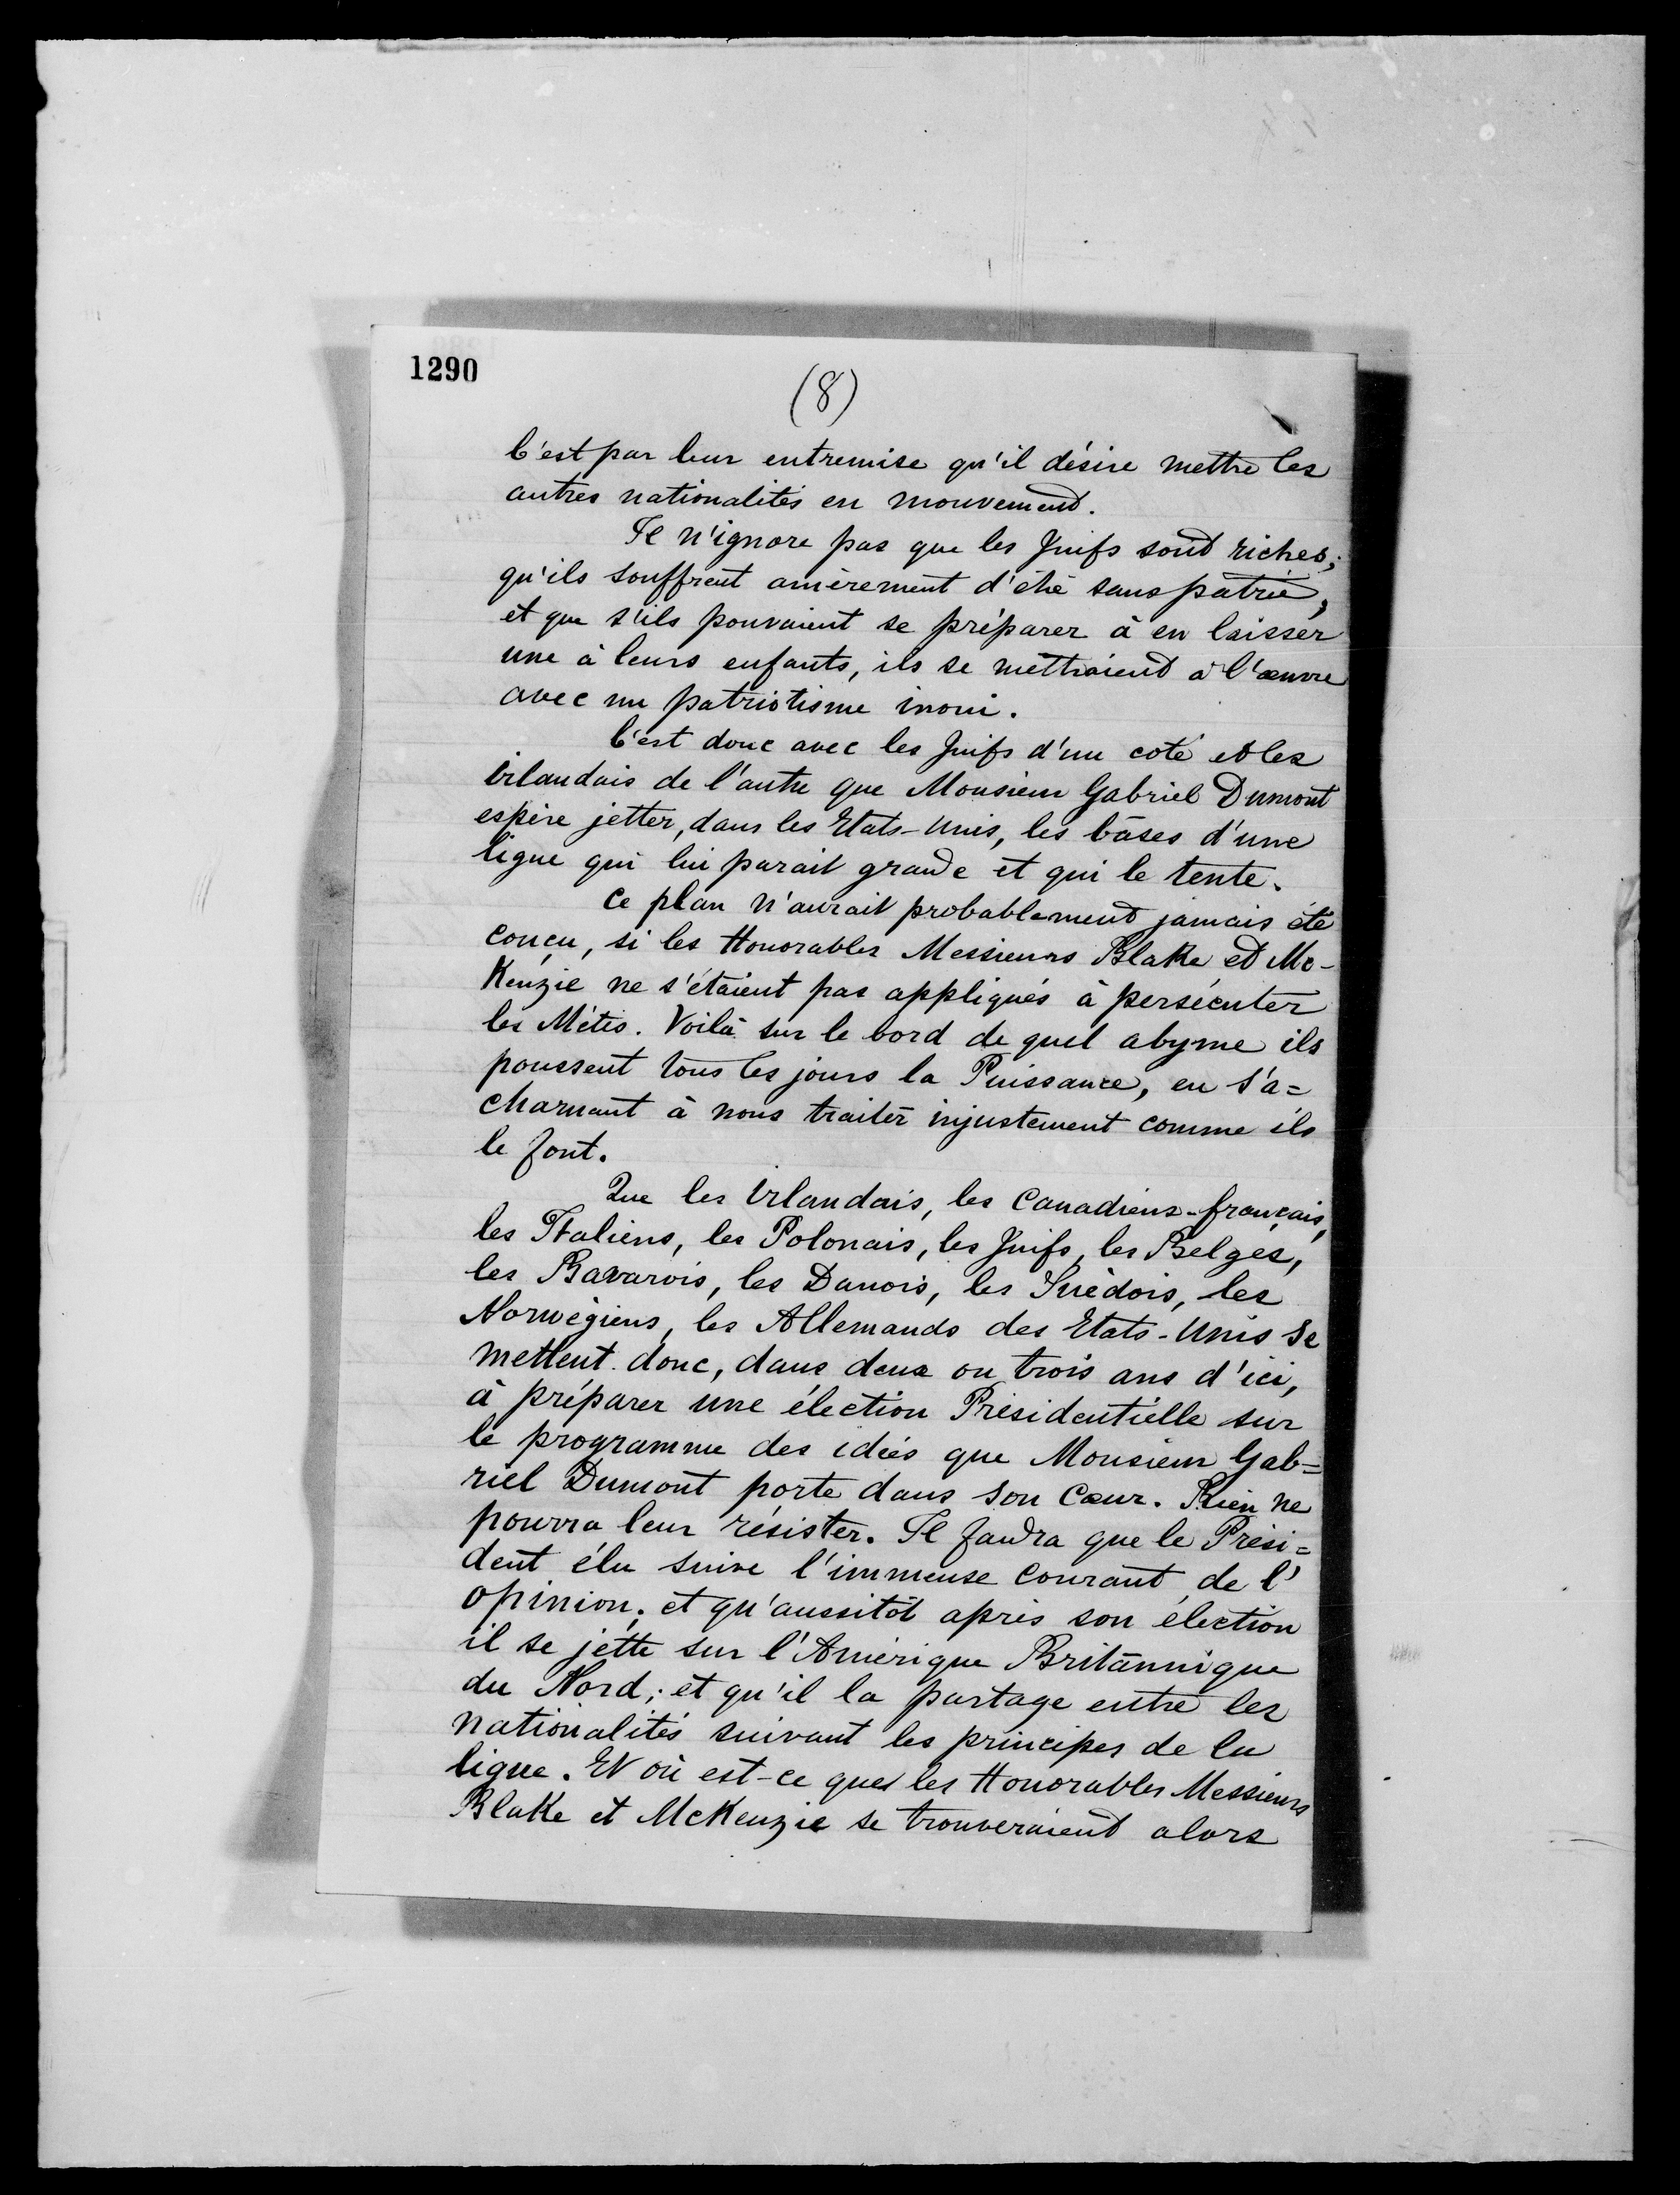 1290
(8)
C'est par leur entremise qu'il désire mettre les
autres nationalités en mouvement.
Il n'ignore pas que les Juifs sont riches;
qu'ils souffrent amèrement d'être sans patrie,
et que s'ils pouvaient se préparer à en laisser
une à leurs enfants, ils se mettraient à l'œuvre
avec un patriotisme inoui.
C'est donc avec les Juifs d'un coté et les
irlandais de l'autre que Monsieur Gabriel Dumont
espère jetter, dans les Etats-Unis, les bâses d'une
ligue qui lui parait grande et qui le tente.
Ce plan n'aurait probablement jamais été
conçu, si les Honorables Messieurs Blake et Mc-
Kenzie ne s'étaient pas appliqués à persécuter
les Métis. Voilà sur le bord de quel abyme ils
poussent tous les jours la Puissance, en s'a=
charnant à nous traiter injustement comme ils
le font.
Que les irlandais, les Canadiens-français,
les Italiens, les Polonais, les Juifs, les Belges,
les Bavarois, les Danois, les Suèdois, les
Norwégiens, les Allemands des Etats-Unis se
mettent donc, dans deux ou trois ans d'ici,
à préparer une élection Présidentielle sur
le programme des idées que Monsieur Gab=
riel Dumont porte dans son cœur. Rien ne
pourra leur résister. Il faudra que le Prési=
dent élu suive l'immense courant de l'
opinion; et qu'aussitôt après son élection
il se jette sur l'Amérique Britannique
du Nord; et qu'il la partage entre les
nationalités suivant les principes de la
ligue. Et où est-ce que les Honorables Messieurs
Blake et McKenzie se trouveraient alors